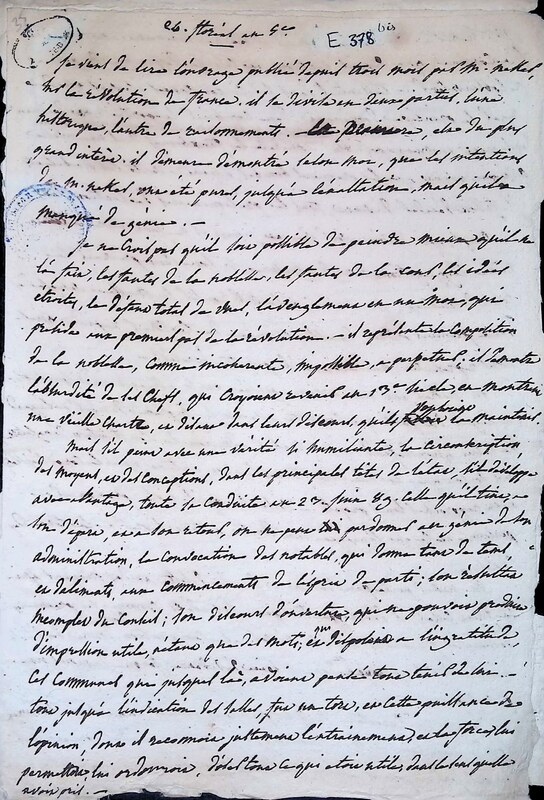 26. floréal an 5e
E 378 bis
Je vient de lire l'ouvrage publié depuis trois mois par Mr. neker,
sur la révolution de france, il se divise en deux parties, l'une
historique, l'autre de raisonnements la premiere, est du plus
grand interet. il demeure démontré selon moi, que les intentions
de Mr. neker, ont été pures, jusqu'à l'exaltation, mais qu'il a
manqué de génie. —
Je ne crois pas qu'il soit possible de peindre mieux qu'il ne
l'a fait, les fautes de la noblesse, les fautes de la cour, les idées
étroites, le defaut total de vues, l'aveuglement en un mot, qui
présida aux premiers pas de la révolution. — il représente la composition
de la noblesse, comme incoherente, impossible, a perpetuer, il demontre
l'absurdité de ses chefs, qui croyaient exister au 13e siecle, en montrant
une vieille charte, et disant dans leurs discours, qu'ils la maintenir.
Mais s'il peint avec une vérité si humiliante, la circonscription
des moyens, et des conceptions, dans les principales têtes de l'état, s'il développe
avec avantage, toute sa conduite au 23. juin 89. celle qu'il tint, a
son départ, et a son retour, on ne peut pardonner au génie de son
administration, la convocation des notables, qui donna tant de tems,
et d'aliments, aux commencements de l'esprit de parti; son
incomplet du Conseil; son discours d'ouverture, qui ne pouvoit produire
d'impression utile, n'etant que des mots, a l'ingratitude,
ces Communes que jusque là, avoient
tout jusqu'à l'indication des salles, fut un tort, et cette puissance de
l'opinion, dont il reconnoit justement l'entrainement, et la force, lui
permettoit lui ordonnoit, tout ce qui etoit utile, dans le sens qu'elle
avoit pris. —